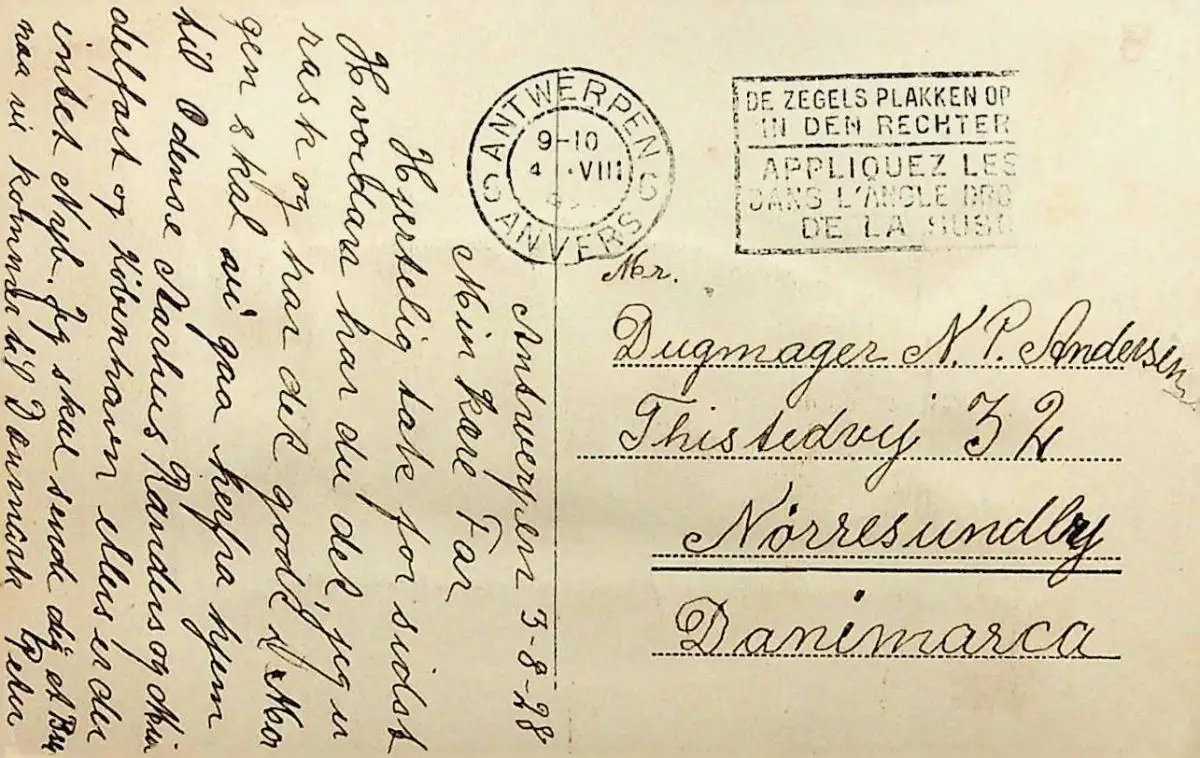 Antwerpen 3-8-28
Min Kære Far
Hjertelig tak for sidst
Hvordan har du det, jeg er
rask og har det godt, i Mor
gen skal vi gaa herfra hjem
til Odense Aarhus Randers og Mid
delfart og Köbenhavn ellers er der
intet Nyt. Jeg skul sende dig et Brev
naar vi kommer til Danmark Peter
ANTWERPEN
9-10
4 VIII
ANVERS
DE ZEGELS PLAKKEN OP
IN DEN RECHTER
APPLIQUEZ LES
DANS L'ANGLE DRO
DE LA SUSC
Mr.
Dugmager N. P. Andersen
Thistedvej 32
Nörresundby
Danimarca